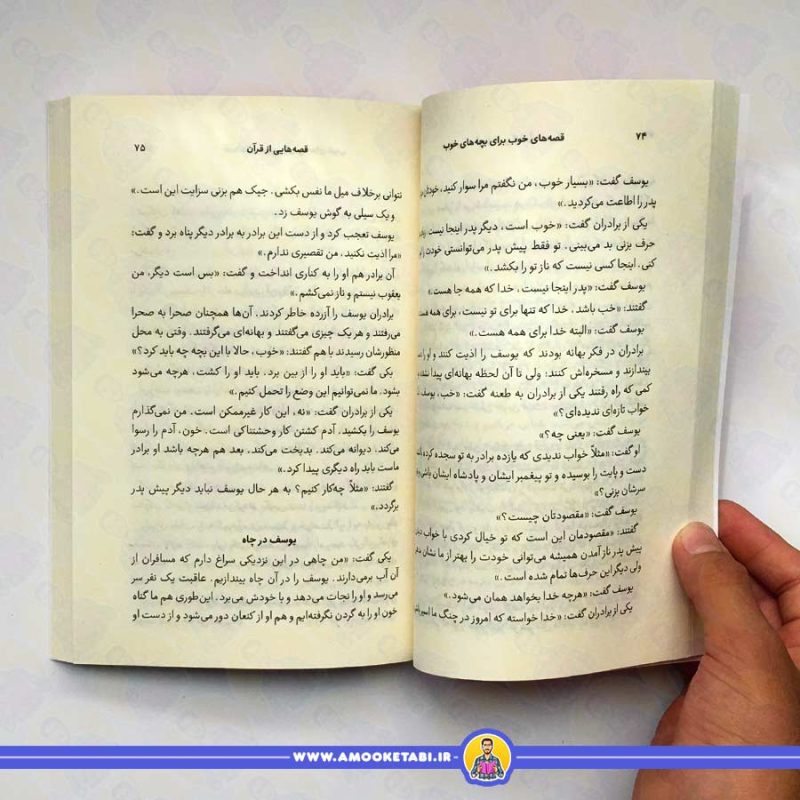 ۷۴
قصه‌های خوب برای بچه‌های خوب
یوسف گفت: «بسیار خوب، من نگفتم مرا سوار کنید، خودتان
پدر را اطاعت می‌کردید.»
یکی از برادران گفت: «خوب است، دیگر پدر اینجا نیست
حرف بزنی بد می‌بینی. تو فقط پیش پدر می‌توانستی خودت را
کنی. اینجا کسی نیست که ناز تو را بکشد.»
یوسف گفت: «پدر اینجا نیست، خدا که همه جا هست.»
گفتند: «خب باشد، خدا که تنها برای تو نیست، برای همه
یوسف گفت: «البته خدا برای همه هست.»
برادران در فکر بهانه بودند که یوسف را اذیت کنند و او را
بیندازند و مسخره‌اش کنند؛ ولی تا آن لحظه بهانه‌ای پیدا
کمی که راه رفتند یکی از برادران به طعنه گفت: «خب، یوسف
خواب تازه‌ای ندیده‌ای؟»
یوسف گفت: «یعنی چه؟»
او گفت: «مثلاً خواب ندیدی که یازده برادر به تو سجده کرده
دست و پایت را بوسیده و تو پیغمبر ایشان و پادشاه ایشان
سرشان بزنی؟»
یوسف گفت: «مقصودتان چیست؟»
گفتند: «مقصودمان این است که تو خیال کردی با خواب
پیش پدر ناز آمدن همیشه می‌توانی خودت را بهتر از ما نشان
ولی دیگر این حرف‌ها تمام شده است.»
یوسف گفت: «هرچه خدا بخواهد همان می‌شود.»
یکی از برادران گفت: «خدا خواسته که امروز در چنگ ما اسیر
قصه‌هایی از قرآن
۷۵
نتوانی برخلاف میل ما نفس بکشی. جیک هم بزنی سزایت این است.»
و یک سیلی به گوش یوسف زد.
یوسف تعجب کرد و از دست این برادر به برادر دیگر پناه برد و گفت:
«مرا اذیت نکنید، من تقصیری ندارم.»
آن برادر هم او را به کناری انداخت و گفت: «بس است دیگر، من
یعقوب نیستم و ناز نمی‌کشم.»
برادران یوسف را آزرده خاطر کردند. آن‌ها همچنان صحرا به صحرا
می‌رفتند و هر یک چیزی می‌گفتند و بهانه‌ای می‌گرفتند. وقتی به محل
منظورشان رسیدند با هم گفتند: «خوب، حالا با این بچه چه باید کرد؟»
یکی گفت: «باید او را از بین برد. باید او را کشت، هرچه می‌شود
بشود. ما نمی‌توانیم این وضع را تحمل کنیم.»
یکی از برادران گفت: «نه، این کار غیرممکن است. من نمی‌گذارم
یوسف را بکشید. آدم کشتن کار وحشتناکی است. خون، آدم را رسوا
می‌کند، دیوانه می‌کند، بدبخت می‌کند. بعد هم هرچه باشد او برادر
ماست باید راه دیگری پیدا کرد.»
گفتند: «مثلاً چه‌کار کنیم؟ به هر حال یوسف نباید دیگر پیش پدر
برگردد.»
یوسف در چاه
یکی گفت: «من چاهی در این نزدیکی سراغ دارم که مسافران از
آن آب برمی‌دارند. یوسف را در آن چاه بیندازیم. عاقبت یک نفر سر
می‌رسد و او را نجات می‌دهد و با خودش می‌برد. این‌طوری هم ما گناه
خون او را به گردن نگرفته‌ایم و هم او از کنعان دور می‌شود و از دست او
WWW.AMOOKETABI.IR